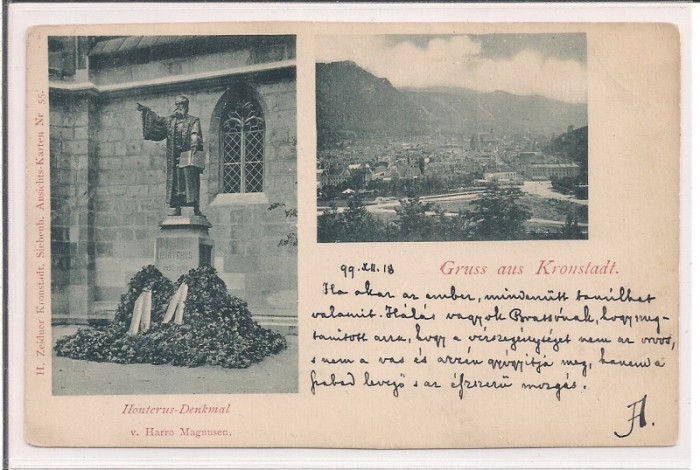 H. Zeidner Kronstadt. Siebenb. Ansichts-Karten Nr. 55.
HONTERUS
Honterus-Denkmal
v. Harro Magnusen.
Gruss aus Kronstadt.
99.XII.18
Ha akar az ember, mindenütt tanúlhat
valamit. Hálás vagyok Brassónak, hogy meg-
tanított arra, hogy a vérszegénységet nem az orvos,
s nem a vas és arzén gyógyítja meg, hanem a
szabad levegő s az észszerű mozgás.